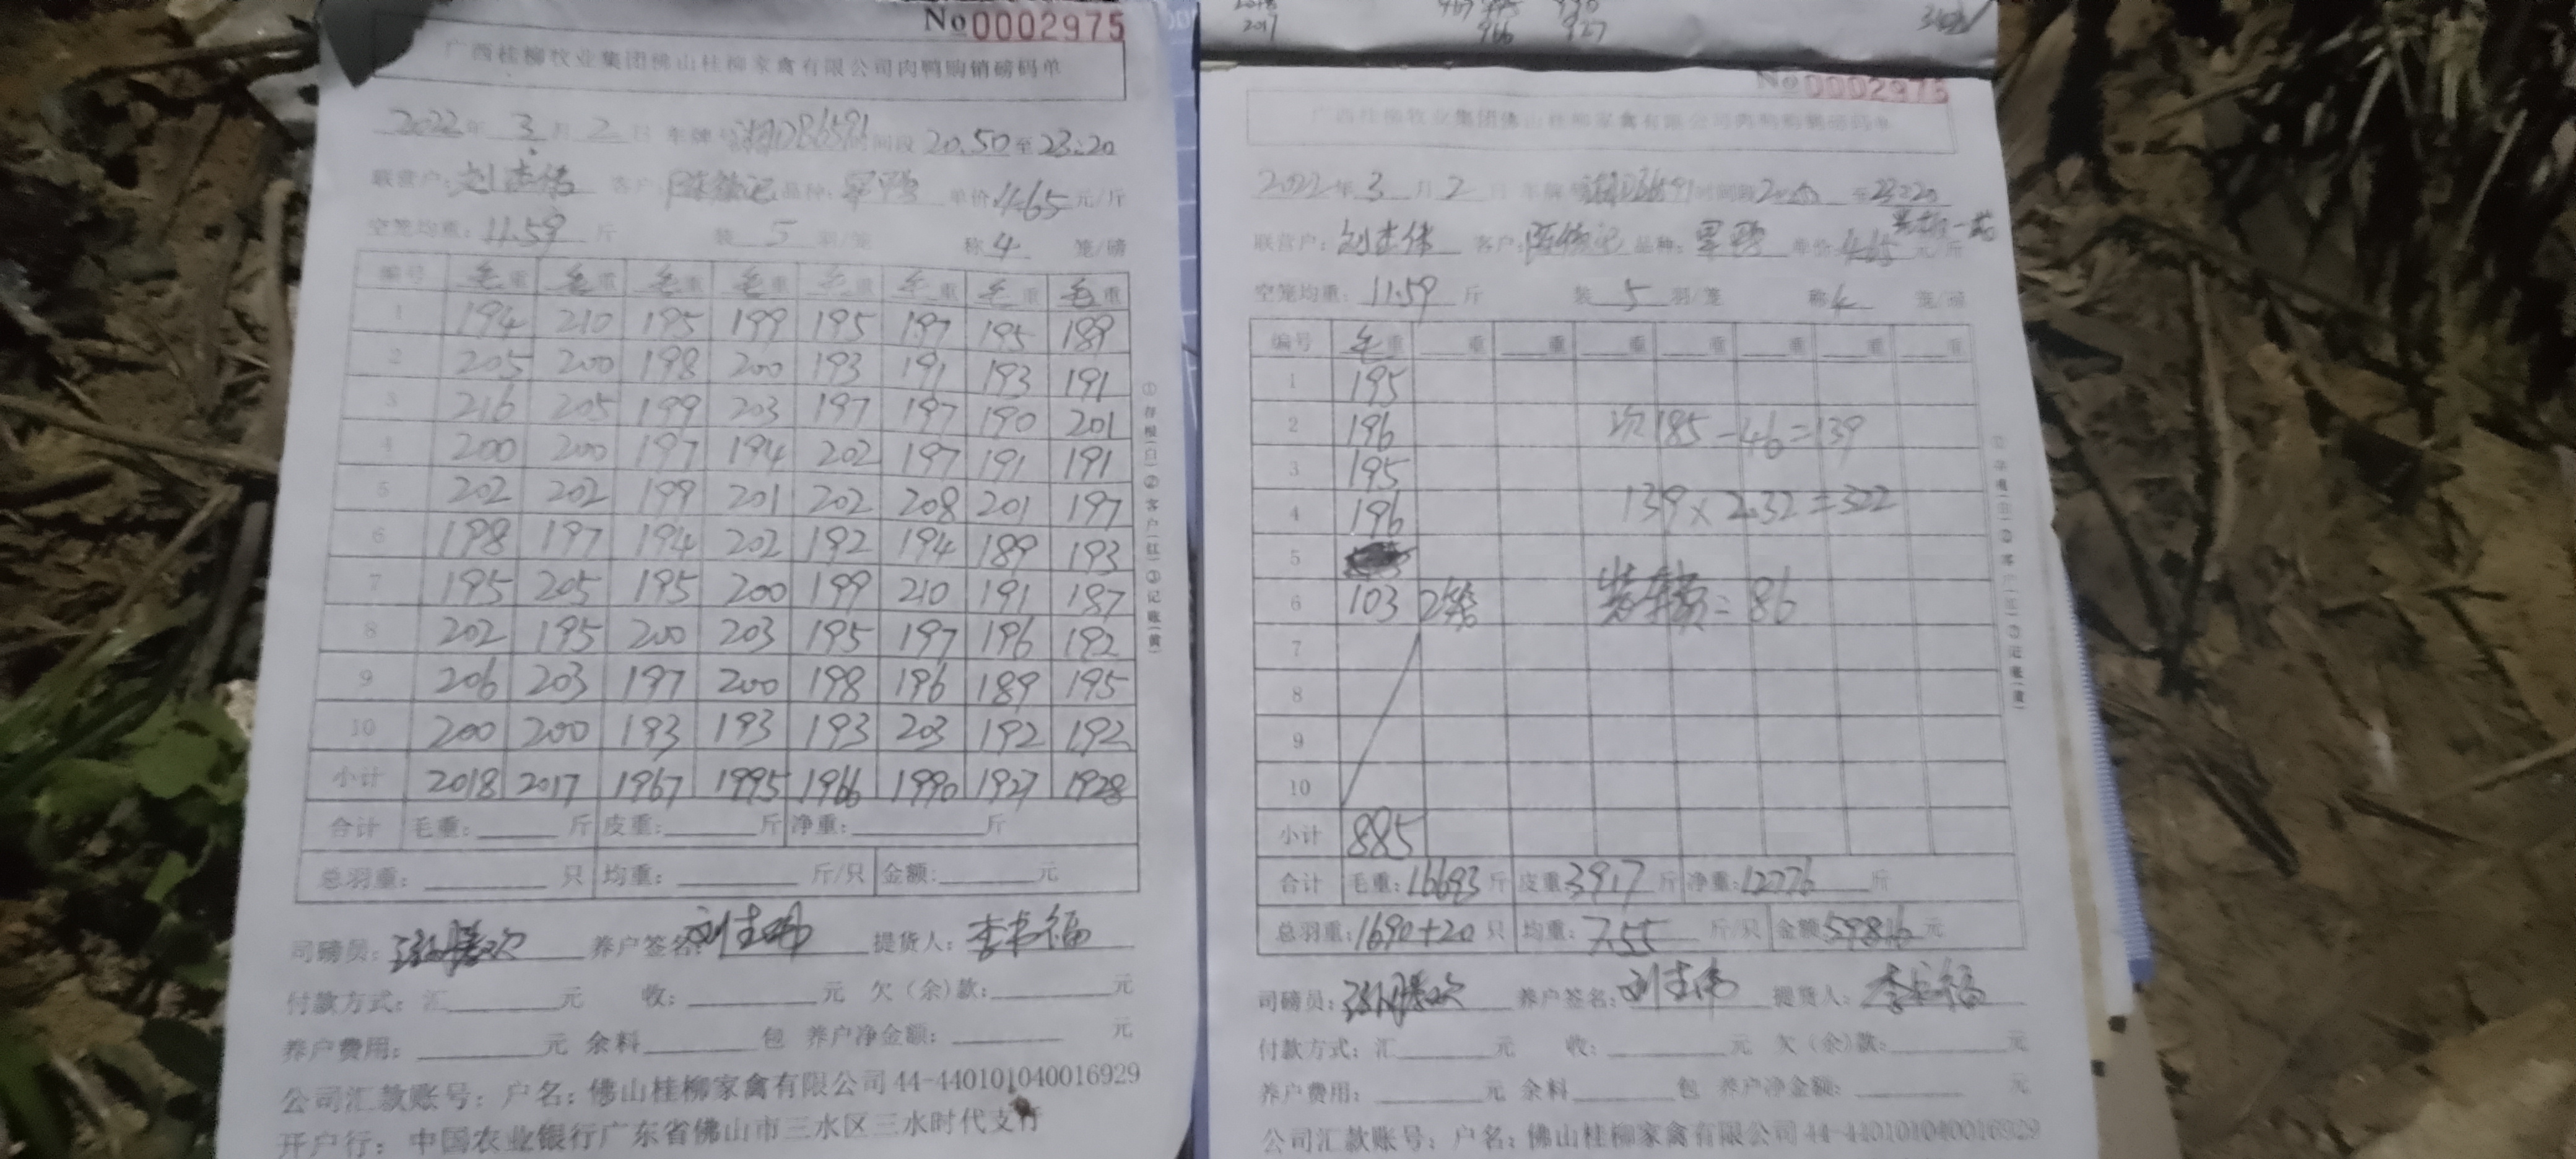 No 0002975
广西桂柳牧业集团佛山桂柳家禽有限公司肉鸭购销磅码单
2022年 3月 2日 车牌号 湘DB6591 时间段 20.50至23:20
联营户: 客户: 品种: 单价:4.65元/斤
空笼均重: 11.59 斤 装 5 羽/笼 称 4 笼/磅
编号 毛重 毛重 毛重 毛重 毛重 毛重 毛重 毛重
1 194 210 195 199 195 197 195 189
2 205 200 198 200 193 191 193 191
3 216 205 199 203 197 197 190 201
4 200 200 197 194 202 197 191 191
5 202 202 199 201 202 208 201 197
6 198 197 194 202 192 194 189 193
7 195 205 195 200 199 210 191 187
8 202 195 200 203 195 197 196 192
9 206 203 197 200 198 196 189 195
10 200 200 193 193 193 203 192 192
小计 2018 2017 1967 1995 1966 1990 1927 1928
合计 毛重: 斤 皮重: 斤 净重: 斤
总羽重: 只 均重: 斤/只 金额: 元
司磅员: 养户签名: 提货人:
付款方式:汇 元 收: 元 欠(余)款: 元
养户费用: 元 余料 包 养户净金额: 元
公司汇款账号:户名:佛山桂柳家禽有限公司44-440101040016929
开户行:中国农业银行广东省佛山市三水区三水时代支行
①存根(白)②客户(红)③记账(黄)
2017 966 927
No 0002975
广西桂柳牧业集团佛山桂柳家禽有限公司肉鸭购销磅码单
2022年 3月 2日 车牌号 时间段 20.50 至23:20
联营户:刘志伟 客户: 品种: 单价:4.65元/斤
空笼均重: 11.59 斤 装 5 羽/笼 称 4 笼/磅
编号 毛重 重 重 重 重 重 重 重
1 195
2 196 次185-46=139
3 195
4 196 139×2.32=322
5
6 103 2笼 =86
7
8
9
10
小计 885
合计 毛重:16693斤 皮重3917斤 净重:12776斤
总羽重:1690+20只 均重:7.55斤/只 金额59816元
司磅员: 养户签名: 提货人:
付款方式:汇 元 收: 元 欠(余)款: 元
养户费用: 元 余料 包 养户净金额: 元
公司汇款账号:户名:佛山桂柳家禽有限公司44-440101040016929